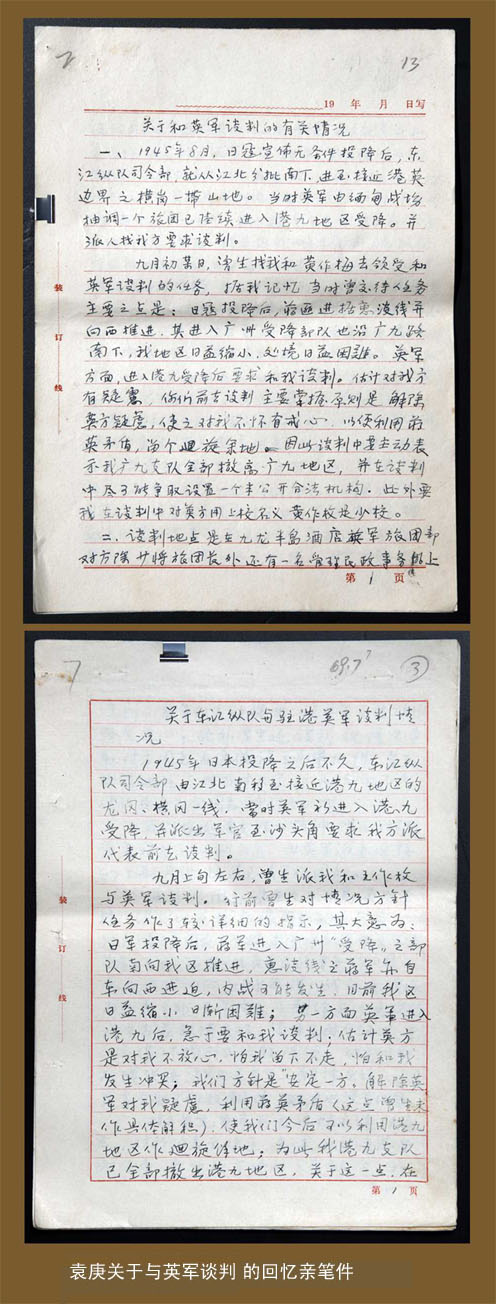 7
13
19 年 月 日写
关于和英军谈判的有关情况
一、1945年8月,日寇宣佈无条件投降后,东
江纵队司令部,就从江北分批南下,进至接近港英
边界之横岗一带山地。当时英军由缅甸战场
抽调一个旅团已陆续进入港九地区受降。并
派人找我方要求谈判。
九月初某日,曾生找我和黄作梅去领受和
英军谈判的任务,据我记忆当时曾交待任务
主要之点是:日寇投降后,蒋匪进据惠波线并
向西推进,其进入广州受降部队也沿广九路
南下,我地区日益缩小,处境日益困难。英军
方面,进入港九受降后要求和我谈判。估计对我方
有疑虑,你们前去谈判主要掌握原则是解除
英方疑虑,使之对我不怀有戒心,以便利用蒋
英矛盾,留个迴旋余地。因此谈判中要主动表
示我广九支队全部撤离广九地区,并在谈判
中尽可能争取设置一个半公开合法机构。此外要
我在谈判中对英方用上校名义黄作梅是少校。
二、谈判地点是在九龙半岛酒店英军旅团部
对方除少将旅团长外还有一名管理民政事务的上
第 1 页
装
订
线
7
69.7?
③
关于东江纵队与驻港英军谈判情
况
1945年日本投降之后不久,东江纵
队司令部由江北南移至接近港九地区的
龙冈、横冈一线,当时英军新进入港九
受降,并派出军官至沙头角要求我方派
代表前去谈判。
九月上旬左右,曾生派我和王作枚
与英军谈判。行前曾生对情况方针
任务作了较详细的指示,其大意为:
日军投降后,蒋军进入广州“受降”之部
队南向我区推进,惠波线之蒋军亦自
东向西进迫,内战可能发生,目前我区
日益缩小日渐困难;另一方面英军进入
港九后,急于要和我谈判;估计英方
是对我不放心,怕我留下不走,怕和我
发生冲突;我们方针是“安定一方、解除英
军对我疑虑,利用蒋英矛盾(这点曾生未
作具体解释),使我们今后可以利用港九
地区作迴旋余地;为此我港九支队
已全部撤出港九地区,关于这一点,在
第 1 页
装
订
线
袁庚关于与英军谈判 的回忆亲笔件